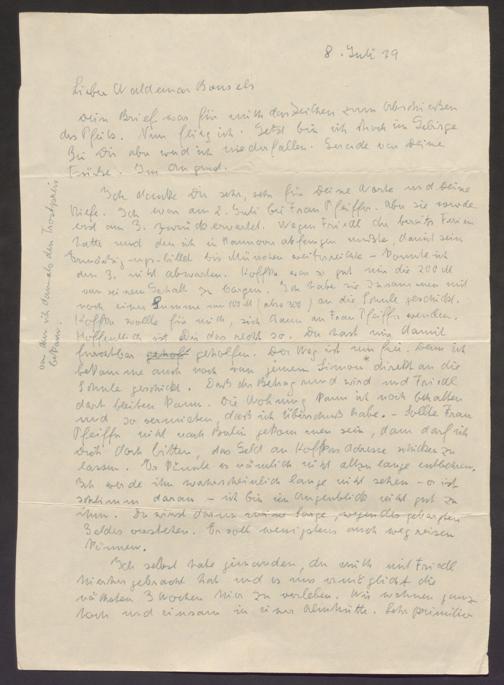 8. Juli 29
Lieber Waldemar Bonsels
Dein Brief war für mich das Zeichen zum Abschießen
des Pfeils. Nun flieg ich. Jetzt bin ich hoch im Gebirge
Bei Dir aber werd ich niederfallen. Gerade vor Deine
Füße. Im August.
Ich danke Dir sehr, sehr für Deine Worte und Deine
Briefe. Ich war am 2. Juli bei Frau Pfeiffer. Aber sie wurde
erst am 3. zurück erwartet. Wegen Friedl der bereits Ferien
hatte und den ich in Hannover abfangen mußte, damit sein
bis München weiterreichte – konnte ich
den 3. nicht abwarten. Hoffen war so gut mir die 200 M
von seinem Gehalt zu borgen. Ich habe sie zusammen mit
noch einer Summe an die Schule geschickt.
Hoffen wollte für mich, sich dann an Frau Pfeiffer wenden.
Hoffentlich ist Dir das recht so. Du hast mir damit
furchtbar geholfen. Der Weg ist nun frei. Denn ich
bekomme auch noch von jenem Simon* direkt an die
Schule geschickt. Daß der Betrag rund wird und Friedl
dort bleiben kann. Die Wohnung kann ich noch behalten
und so vermieten daß ich Überschuß habe. – Sollte Frau
Pfeiffer nicht nach Berlin gekommen sein, dann darf ich
Dich doch bitten, das Geld an Hoffens Adresse schicken zu
lassen. Er könnte es nämlich nicht allzu lange entbehren.
Ich werde ihn wahrscheinlich lange nicht sehen – er ist
schlimm daran – ich bin im Augenblick nicht gut zu
ihm. Du wirst darum meine Sorge, wegen des geborgten
Geldes verstehen. Er soll wenigstens auch weg reisen
können.
Ich selbst habe jemanden, der mich mit Friedl
hierher gebracht hat und es uns ermöglicht die
nächsten 3 Wochen hier zu verleben. Wir wohnen ganz
hoch und einsam in einer Almhütte. Sehr primitiv
von dem ich damals den
bekam.